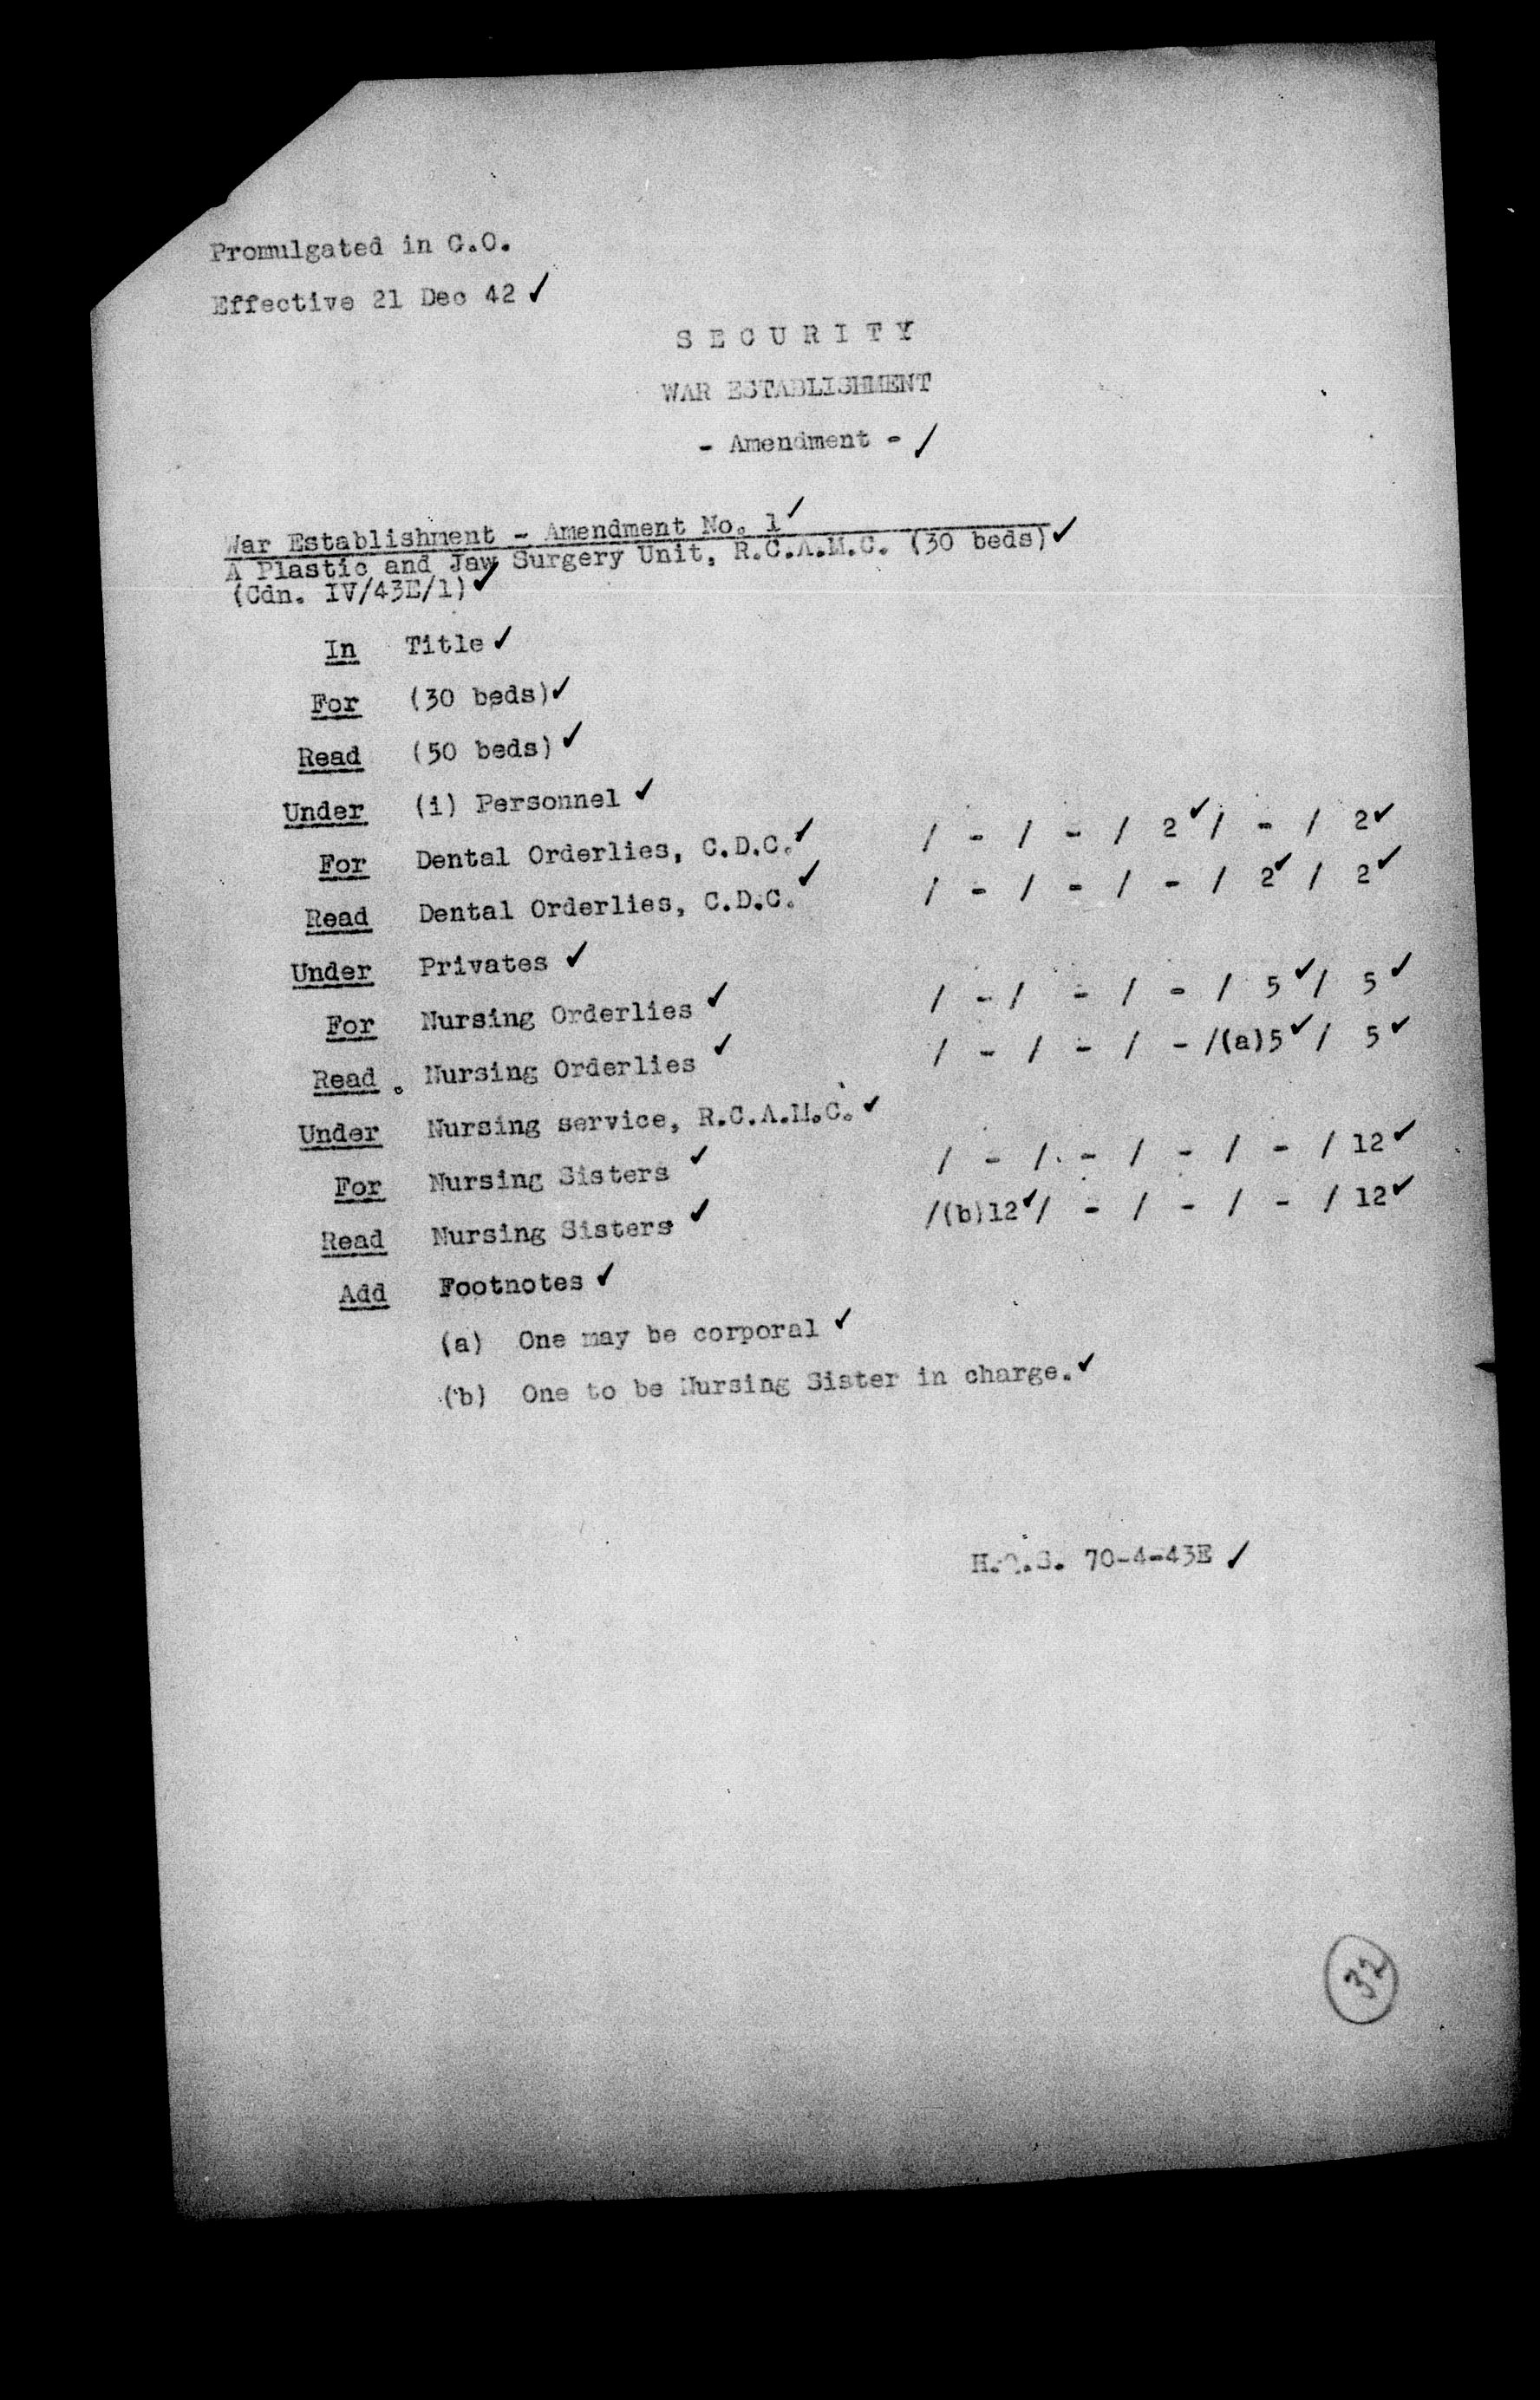 Promulgated in C.O.
Effective 21 Dec 42 ✓
S E C U R I T Y
WAR ESTABLISHMENT
- Amendment - ✓
War Establishment - Amendment No. 1 ✓
A Plastic and Jaw Surgery Unit, R.C.A.M.C. (30 beds) ✓
(Cdn. IV/43E/1) ✓
In Title ✓
For (30 beds) ✓
Read (50 beds) ✓
Under (i) Personnel ✓
For Dental Orderlies, C.D.C. ✓ / - / - / 2 ✓ / - / 2 ✓
Read Dental Orderlies, C.D.C. ✓ / - / - / - / 2 ✓ / 2 ✓
Under Privates ✓
For Nursing Orderlies ✓ / - / - / - / 5 ✓ / 5 ✓
Read Nursing Orderlies ✓ / - / - / - /(a)5 ✓ / 5 ✓
Under Nursing service, R.C.A.M.C. ✓
For Nursing Sisters ✓ / - / - / - / - / 12 ✓
Read Nursing Sisters ✓ /(b)12 ✓ / - / - / - / 12 ✓
Add Footnotes ✓
(a) One may be corporal ✓
(b) One to be Nursing Sister in charge. ✓
H.Q.S. 70-4-43E ✓
32